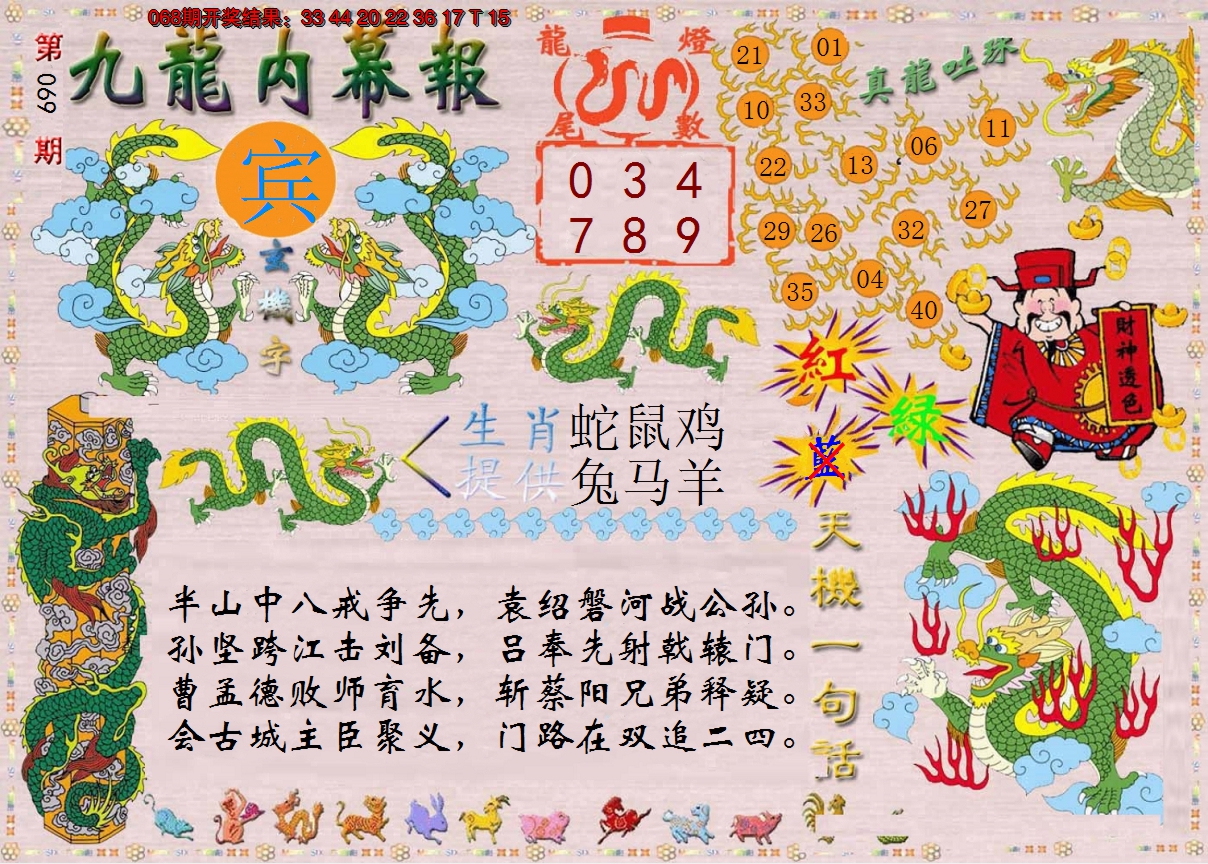 068期开奖结果：33 44 20 22 36 17 T 15
第
069
期
九龍内幕報
宾
玄
機
字
龍 燈
尾 數
0 3 4
7 8 9
真龍吐珠
21
01
10
33
22
13
06
11
29
26
32
27
35
04
40
紅
綠
藍
財神透色
生肖 蛇鼠鸡
提供 兔马羊
半山中八戒争先，袁绍磐河战公孙。
孙坚跨江击刘备，吕奉先射戟辕门。
曹孟德败师育水，斩蔡阳兄弟释疑。
会古城主臣聚义，门路在双追二四。
天機一句話